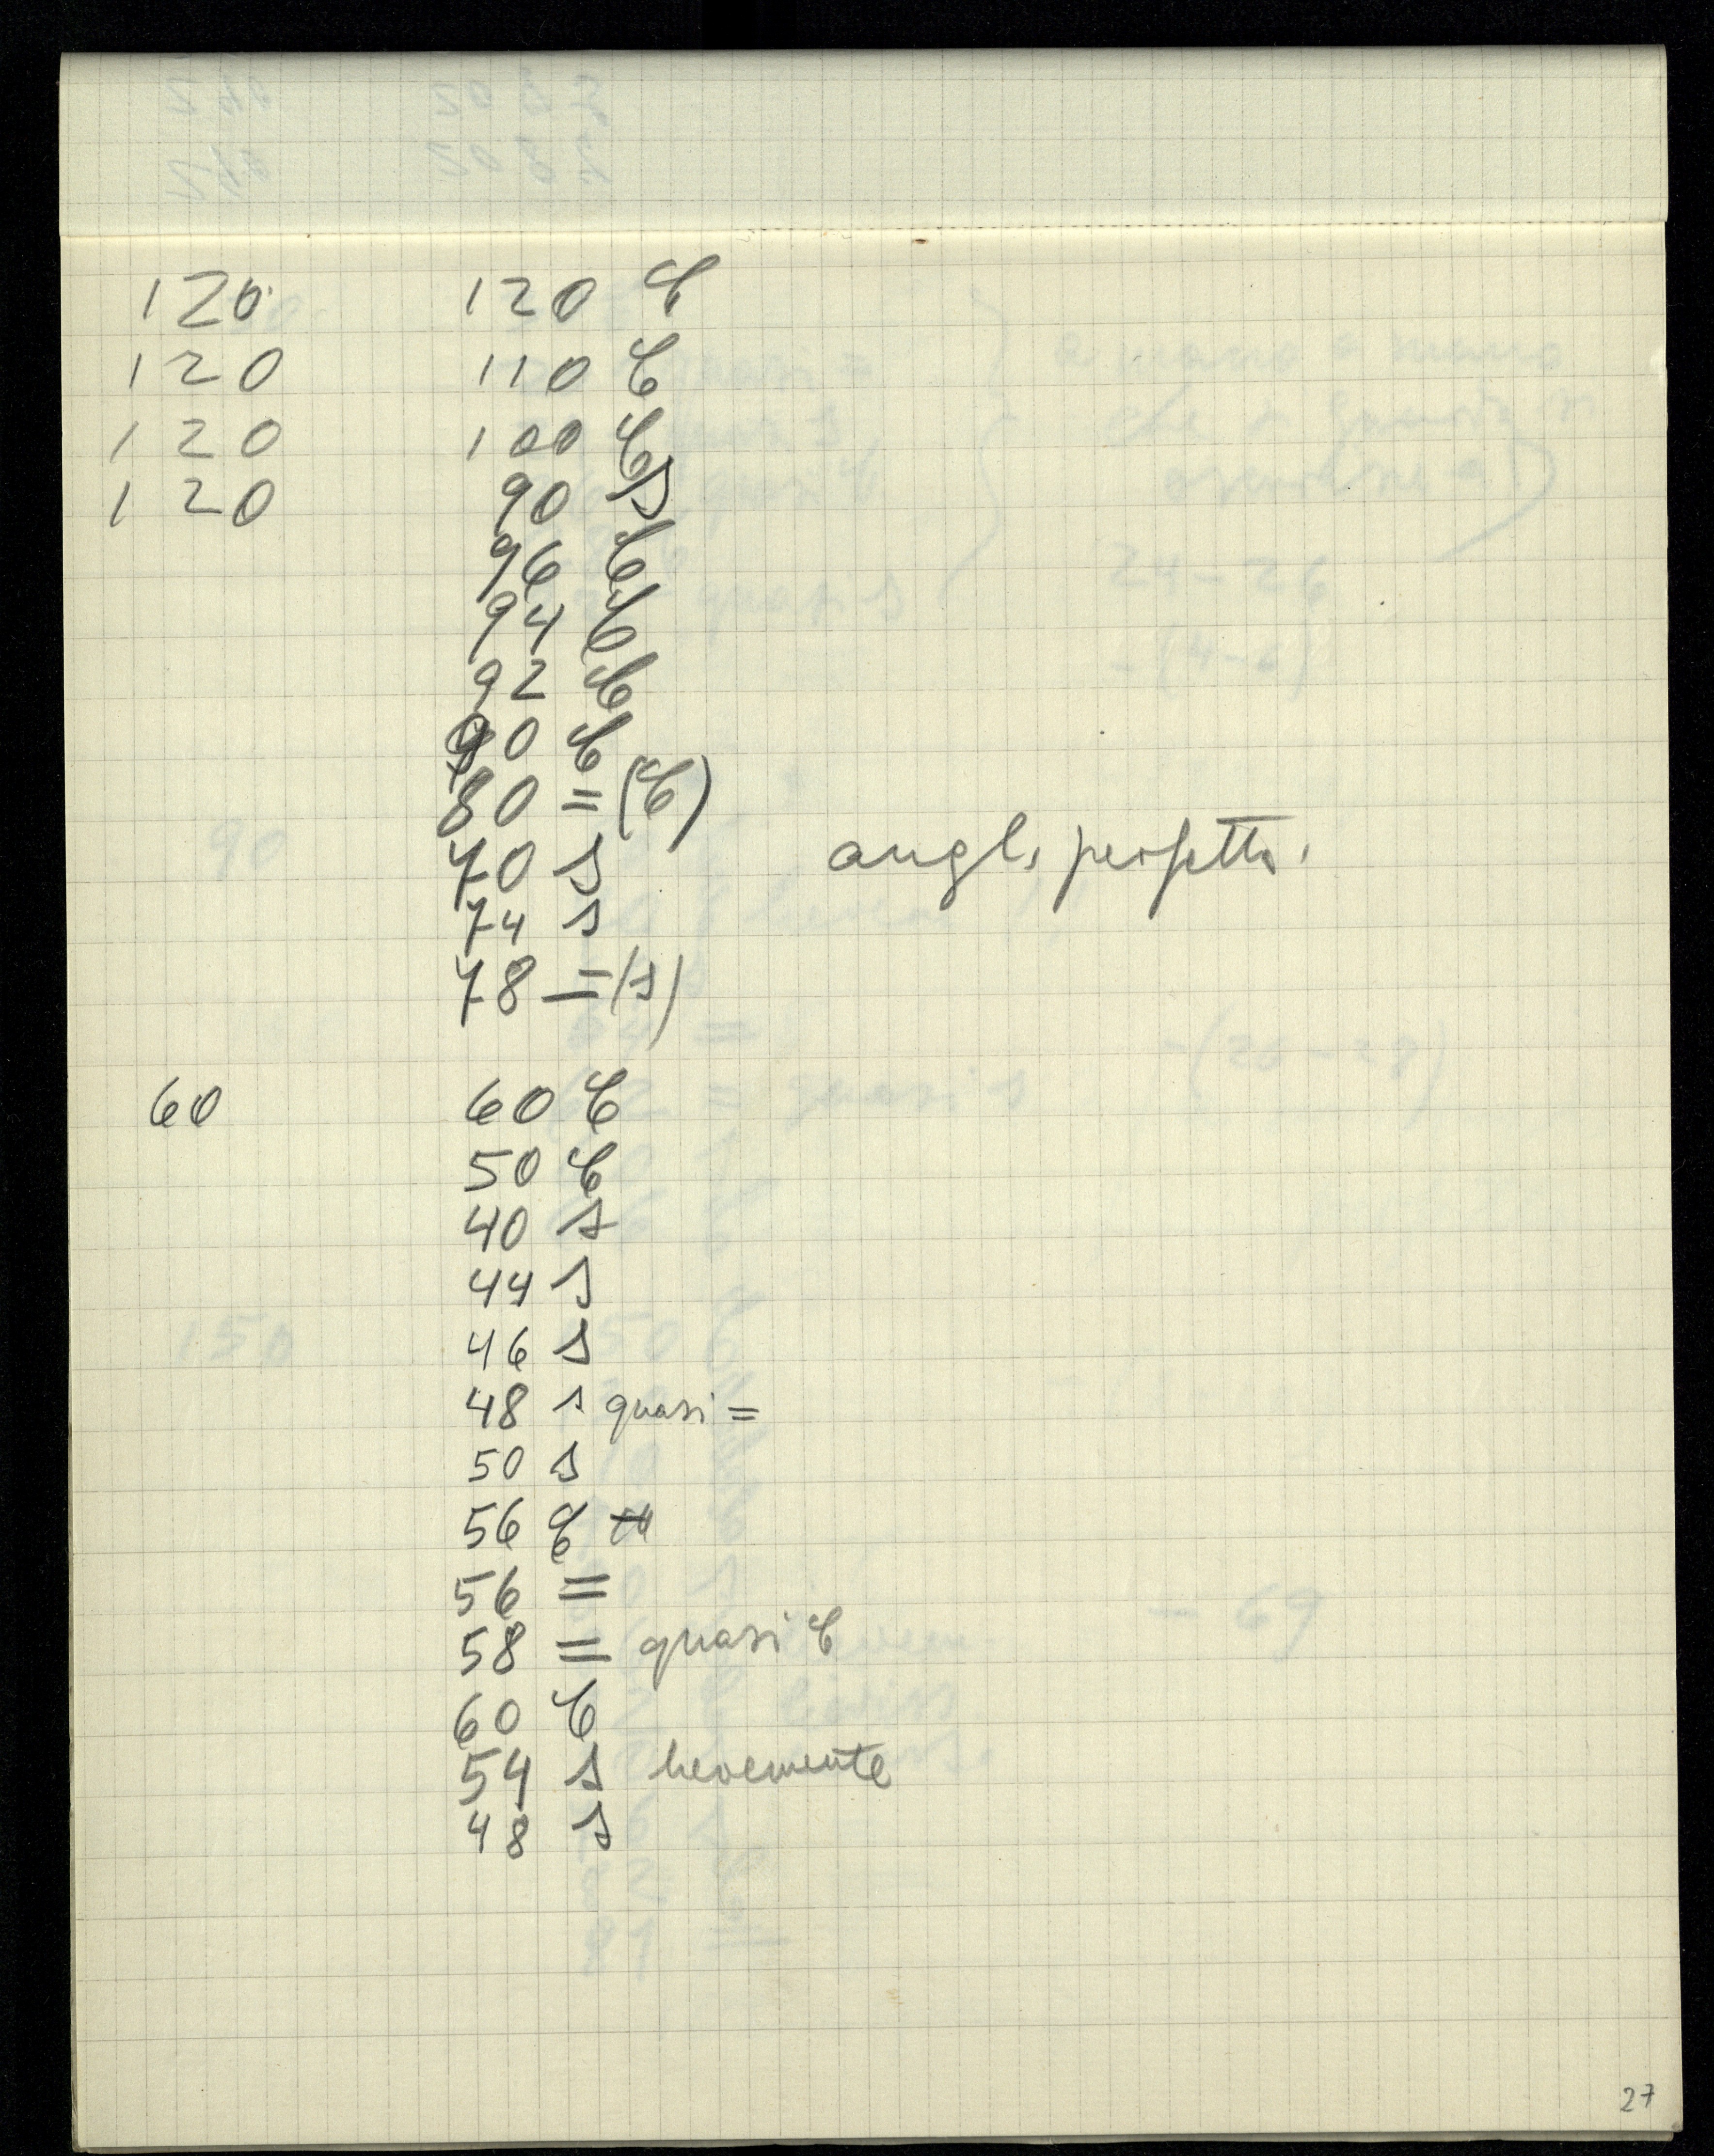 120 120 C
120 110 C
120 100 C
120 90 s
96 C
94 C
92 C
90 C
80 = (C)
70 s angl. perfetti.
74 s
78 = (s)
60 60 C
50 C
40 s
44 s
46 s
48 s quasi =
50 s
56 C
56 =
58 = quasi C
60 C
54 s lievemente
48 s
27